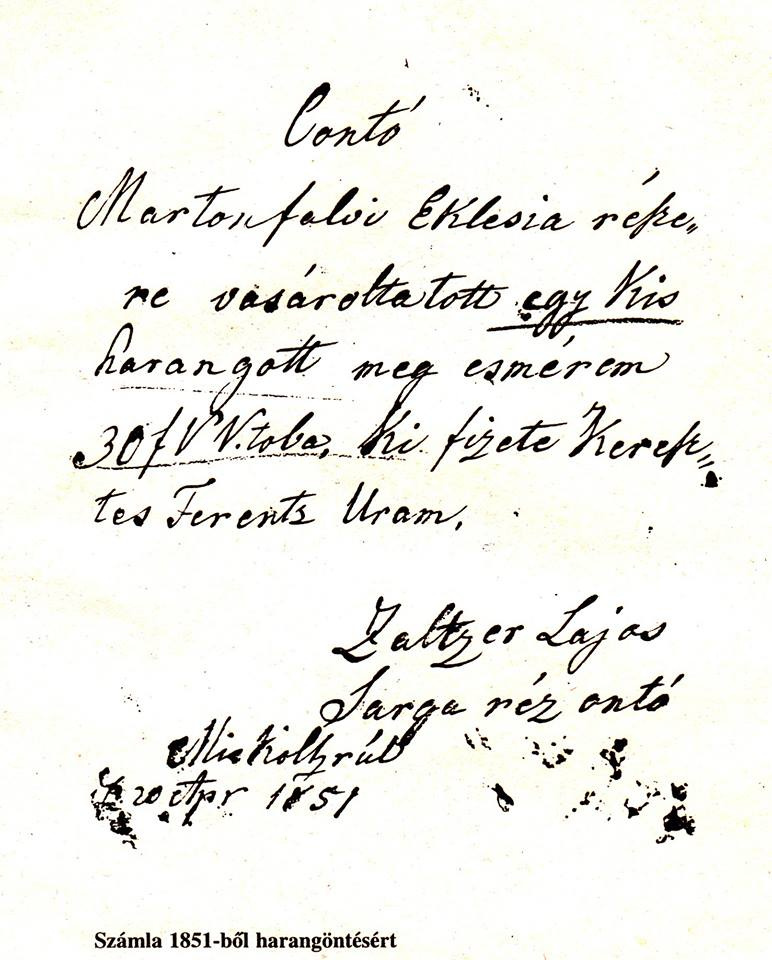 Contó
Martonfalvi Eklesia része„
re vasároltatott egy Kis
harangott meg esmérem
30f V V.toba, Ki fizete Keresz„
tes Ferentz Uram,
Zaltzer Lajos
Sarga réz ontó
Miskoltzrúl
20 Apr 1851
Számla 1851-ből harangöntésért